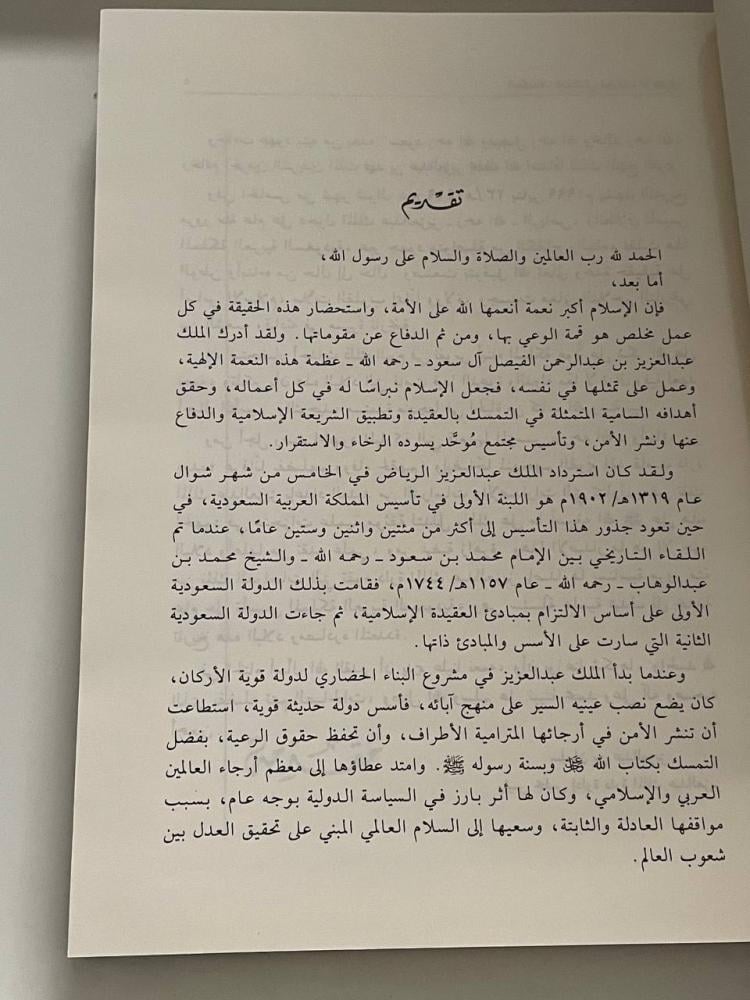 تقديم
الحمد لله رب العالمين والصلاة والسلام على رسول الله،
أما بعد،
فإن الإسلام أكبر نعمة أنعمها الله على الأمة، واستحضار هذه الحقيقة في كل
عمل مخلص هو قمة الوعي بها، ومن ثم الدفاع عن مقوماتها. ولقد أدرك الملك
عبدالعزيز بن عبدالرحمن الفيصل آل سعود ـ رحمه الله ـ عظمة هذه النعمة الإلهية،
وعمل على تمثلها في نفسه، فجعل الإسلام نبراسًا له في كل أعماله، وحقق
أهدافه السامية المتمثلة في التمسك بالعقيدة وتطبيق الشريعة الإسلامية والدفاع
عنها ونشر الأمن، وتأسيس مجتمع مُوحَّد يسوده الرخاء والاستقرار.
ولقد كان استرداد الملك عبدالعزيز الرياض في الخامس من شهر شوال
عام ١٣١٩هـ/١٩٠٢م هو اللبنة الأولى في تأسيس المملكة العربية السعودية، في
حين تعود جذور هذا التأسيس إلى أكثر من مئتين واثنين وستين عامًا، عندما تم
اللقاء التاريخي بين الإمام محمد بن سعود ـ رحمه الله ـ والشيخ محمد بن
عبدالوهاب ـ رحمه الله ـ عام ١١٥٧هـ/١٧٤٤م، فقامت بذلك الدولة السعودية
الأولى على أساس الالتزام بمبادئ العقيدة الإسلامية، ثم جاءت الدولة السعودية
الثانية التي سارت على الأسس والمبادئ ذاتها.
وعندما بدأ الملك عبدالعزيز في مشروع البناء الحضاري لدولة قوية الأركان،
كان يضع نصب عينيه السير على منهج آبائه، فأسس دولة حديثة قوية، استطاعت
أن تنشر الأمن في أرجائها المترامية الأطراف، وأن تحفظ حقوق الرعية، بفضل
التمسك بكتاب الله ﷻ وبسنة رسوله ﷺ. وامتد عطاؤها إلى معظم أرجاء العالمين
العربي والإسلامي، وكان لها أثر بارز في السياسة الدولية بوجه عام، بسبب
مواقفها العادلة والثابتة، وسعيها إلى السلام العالمي المبني على تحقيق العدل بين
شعوب العالم.